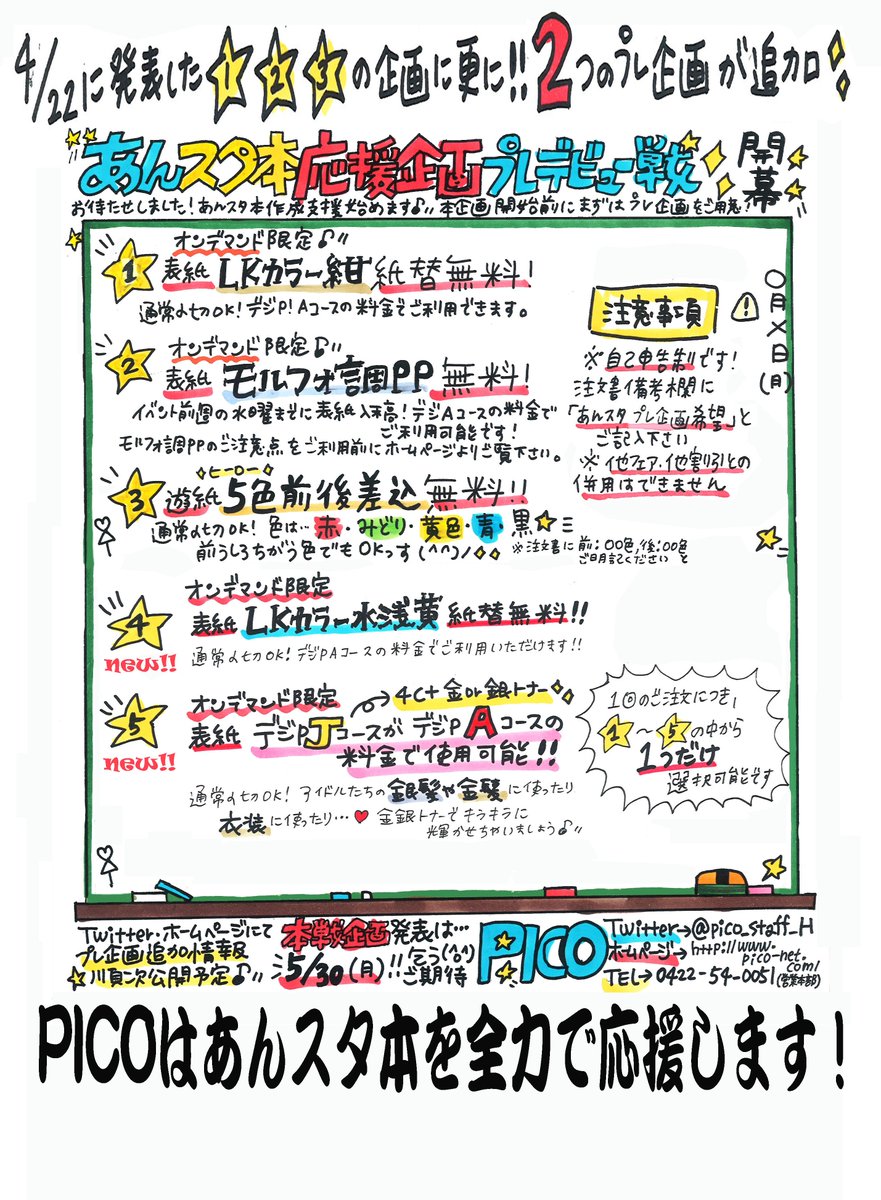 4/22に発表した 1 2 3 の企画に更に!! 2つのプレ企画が追加
あんスタ本応援企画プレデビュー戦
開幕
お待たせしました!あんスタ本作成支援始めます♪〃 本企画開始前にまずはプレ企画をご用意!
1 オンデマンド限定♪〃
表紙 LKカラー紺 紙替無料!
通常〆切OK!デジP!Aコースの料金でご利用できます。
2 オンデマンド限定♪〃
表紙 モルフォ調PP 無料!
イベント前週の水曜までに表紙入稿!デジAコースの料金で
ご利用可能です!
モルフォ調PPのご注意点をご利用前にホームページよりご覧下さい。
3 ヒーロー
遊紙 5色前後差込 無料!!
通常〆切OK!色は…赤・みどり・黄色・青・黒
前うしろちがう色でもOKっす(^^)ノ
※注文書に前:〇〇色,後:〇〇色
とご明記ください
4 オンデマンド限定
表紙 LKカラー水浅黄 紙替無料!!
new!! 通常〆切OK!デジP Aコースの料金でご利用いただけます!!
5 オンデマンド限定 4C+金or銀トナー
表紙 デジP Jコースが デジP Aコースの
new!! 料金で使用可能!!
通常〆切OK!アイドルたちの銀髪や金髪に使ったり
衣装に使ったり…♥ 金銀トナーでキラキラに
輝かせちゃいましょう♪〃
〇月×日(月)
注意事項
※自己申告制です!
注文書備考欄に
「あんスタプレ企画希望」と
ご記入下さい
※他フェア・他割引との
併用はできません
1回のご注文につき、
1〜5の中から
1つだけ
選択可能です
Twitter・ホームページにて
プレ企画追加情報
順次公開予定♪〃
本戦企画発表は…
5/30(月)!!
乞う(^o^)
ご期待
PICO
Twitter→@pico_staff_H
ホームページ→http://www.pico-net.com/
TEL→0422-54-0051(営業本部)
PICOはあんスタ本を全力で応援します!